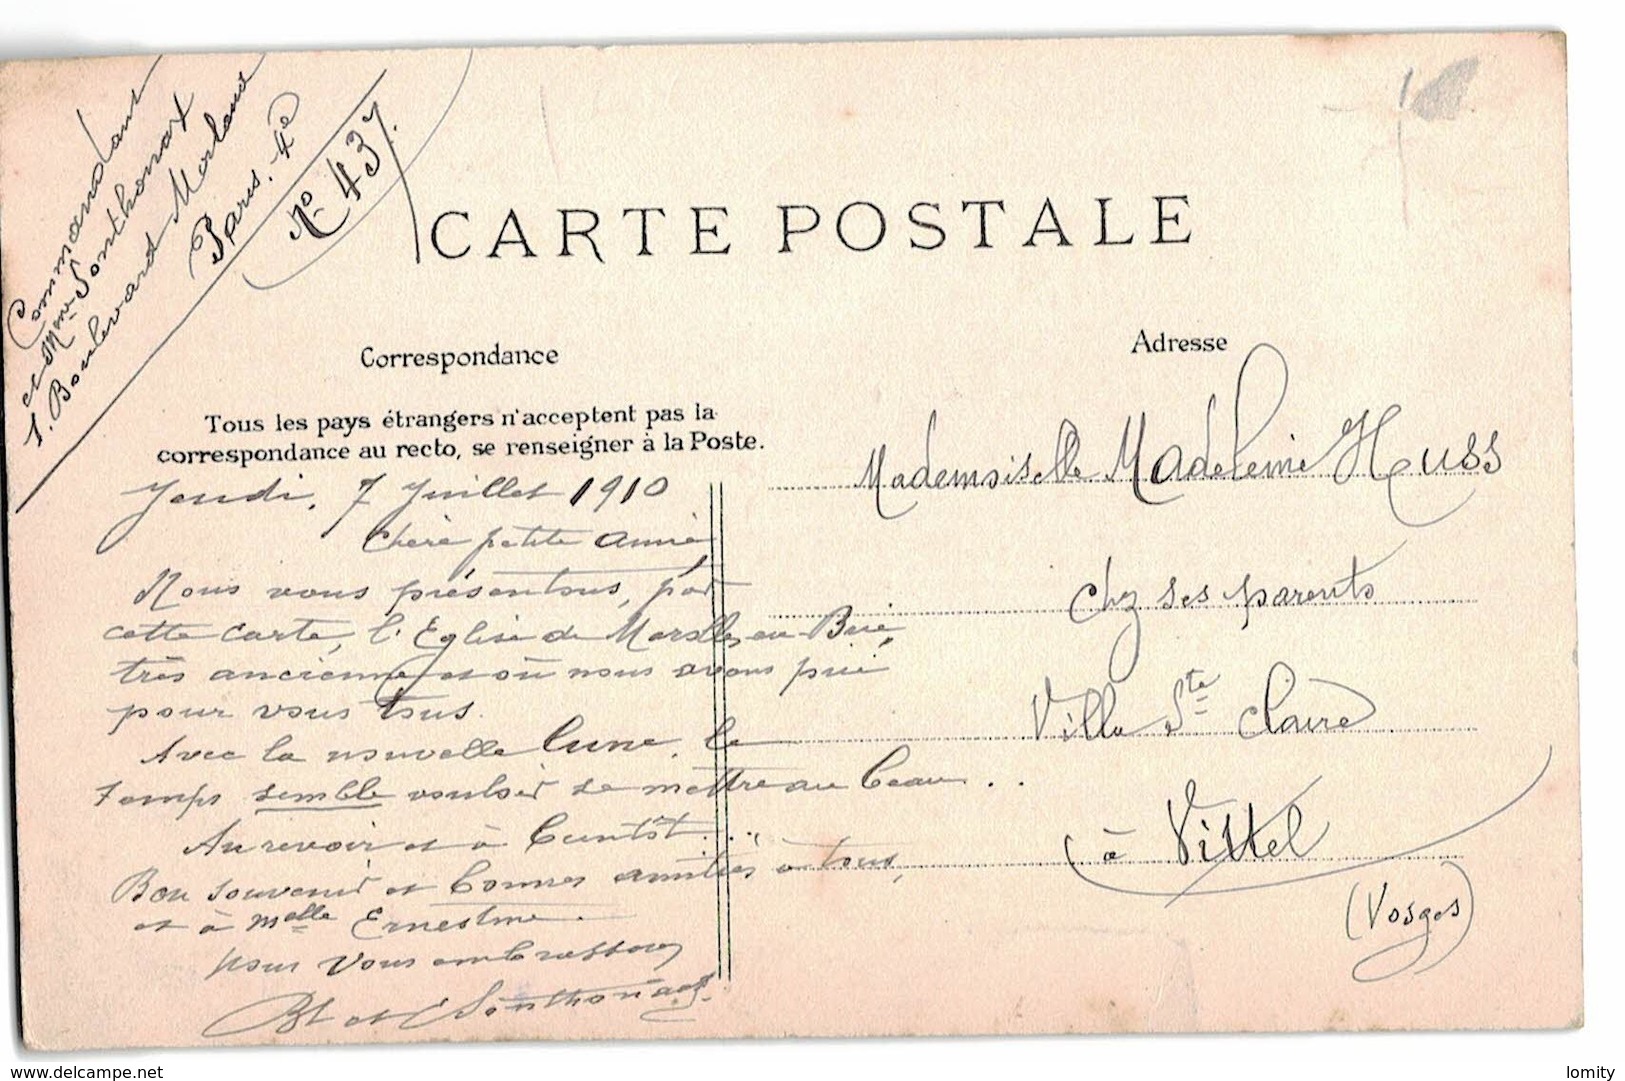 Commandant
et Mme Sonthonax
1. Boulevard Morland
Paris. 4e
No. 437.
CARTE POSTALE
Correspondance
Adresse
Tous les pays étrangers n'acceptent pas la
correspondance au recto, se renseigner à la Poste.
Jeudi, 7 Juillet 1910
Chère petite amie
Nous vous présentons, par
cette carte, l'Eglise de Marolles en Brie,
très ancienne et où nous avons prié
pour vous tous.
Avec la nouvelle lune, le
temps semble vouloir se mettre au beau...
Au revoir et à bientôt....
Bon souvenir et bonnes amitiés à tous,
et à Melle Ernestine.
nous vous embrassons
Bt et E Sonthonax.
Mademoiselle Madeleine Huss
chez ses parents
Villa Ste Claire
à Vittel
(Vosges)
www.delcampe.net
lomity